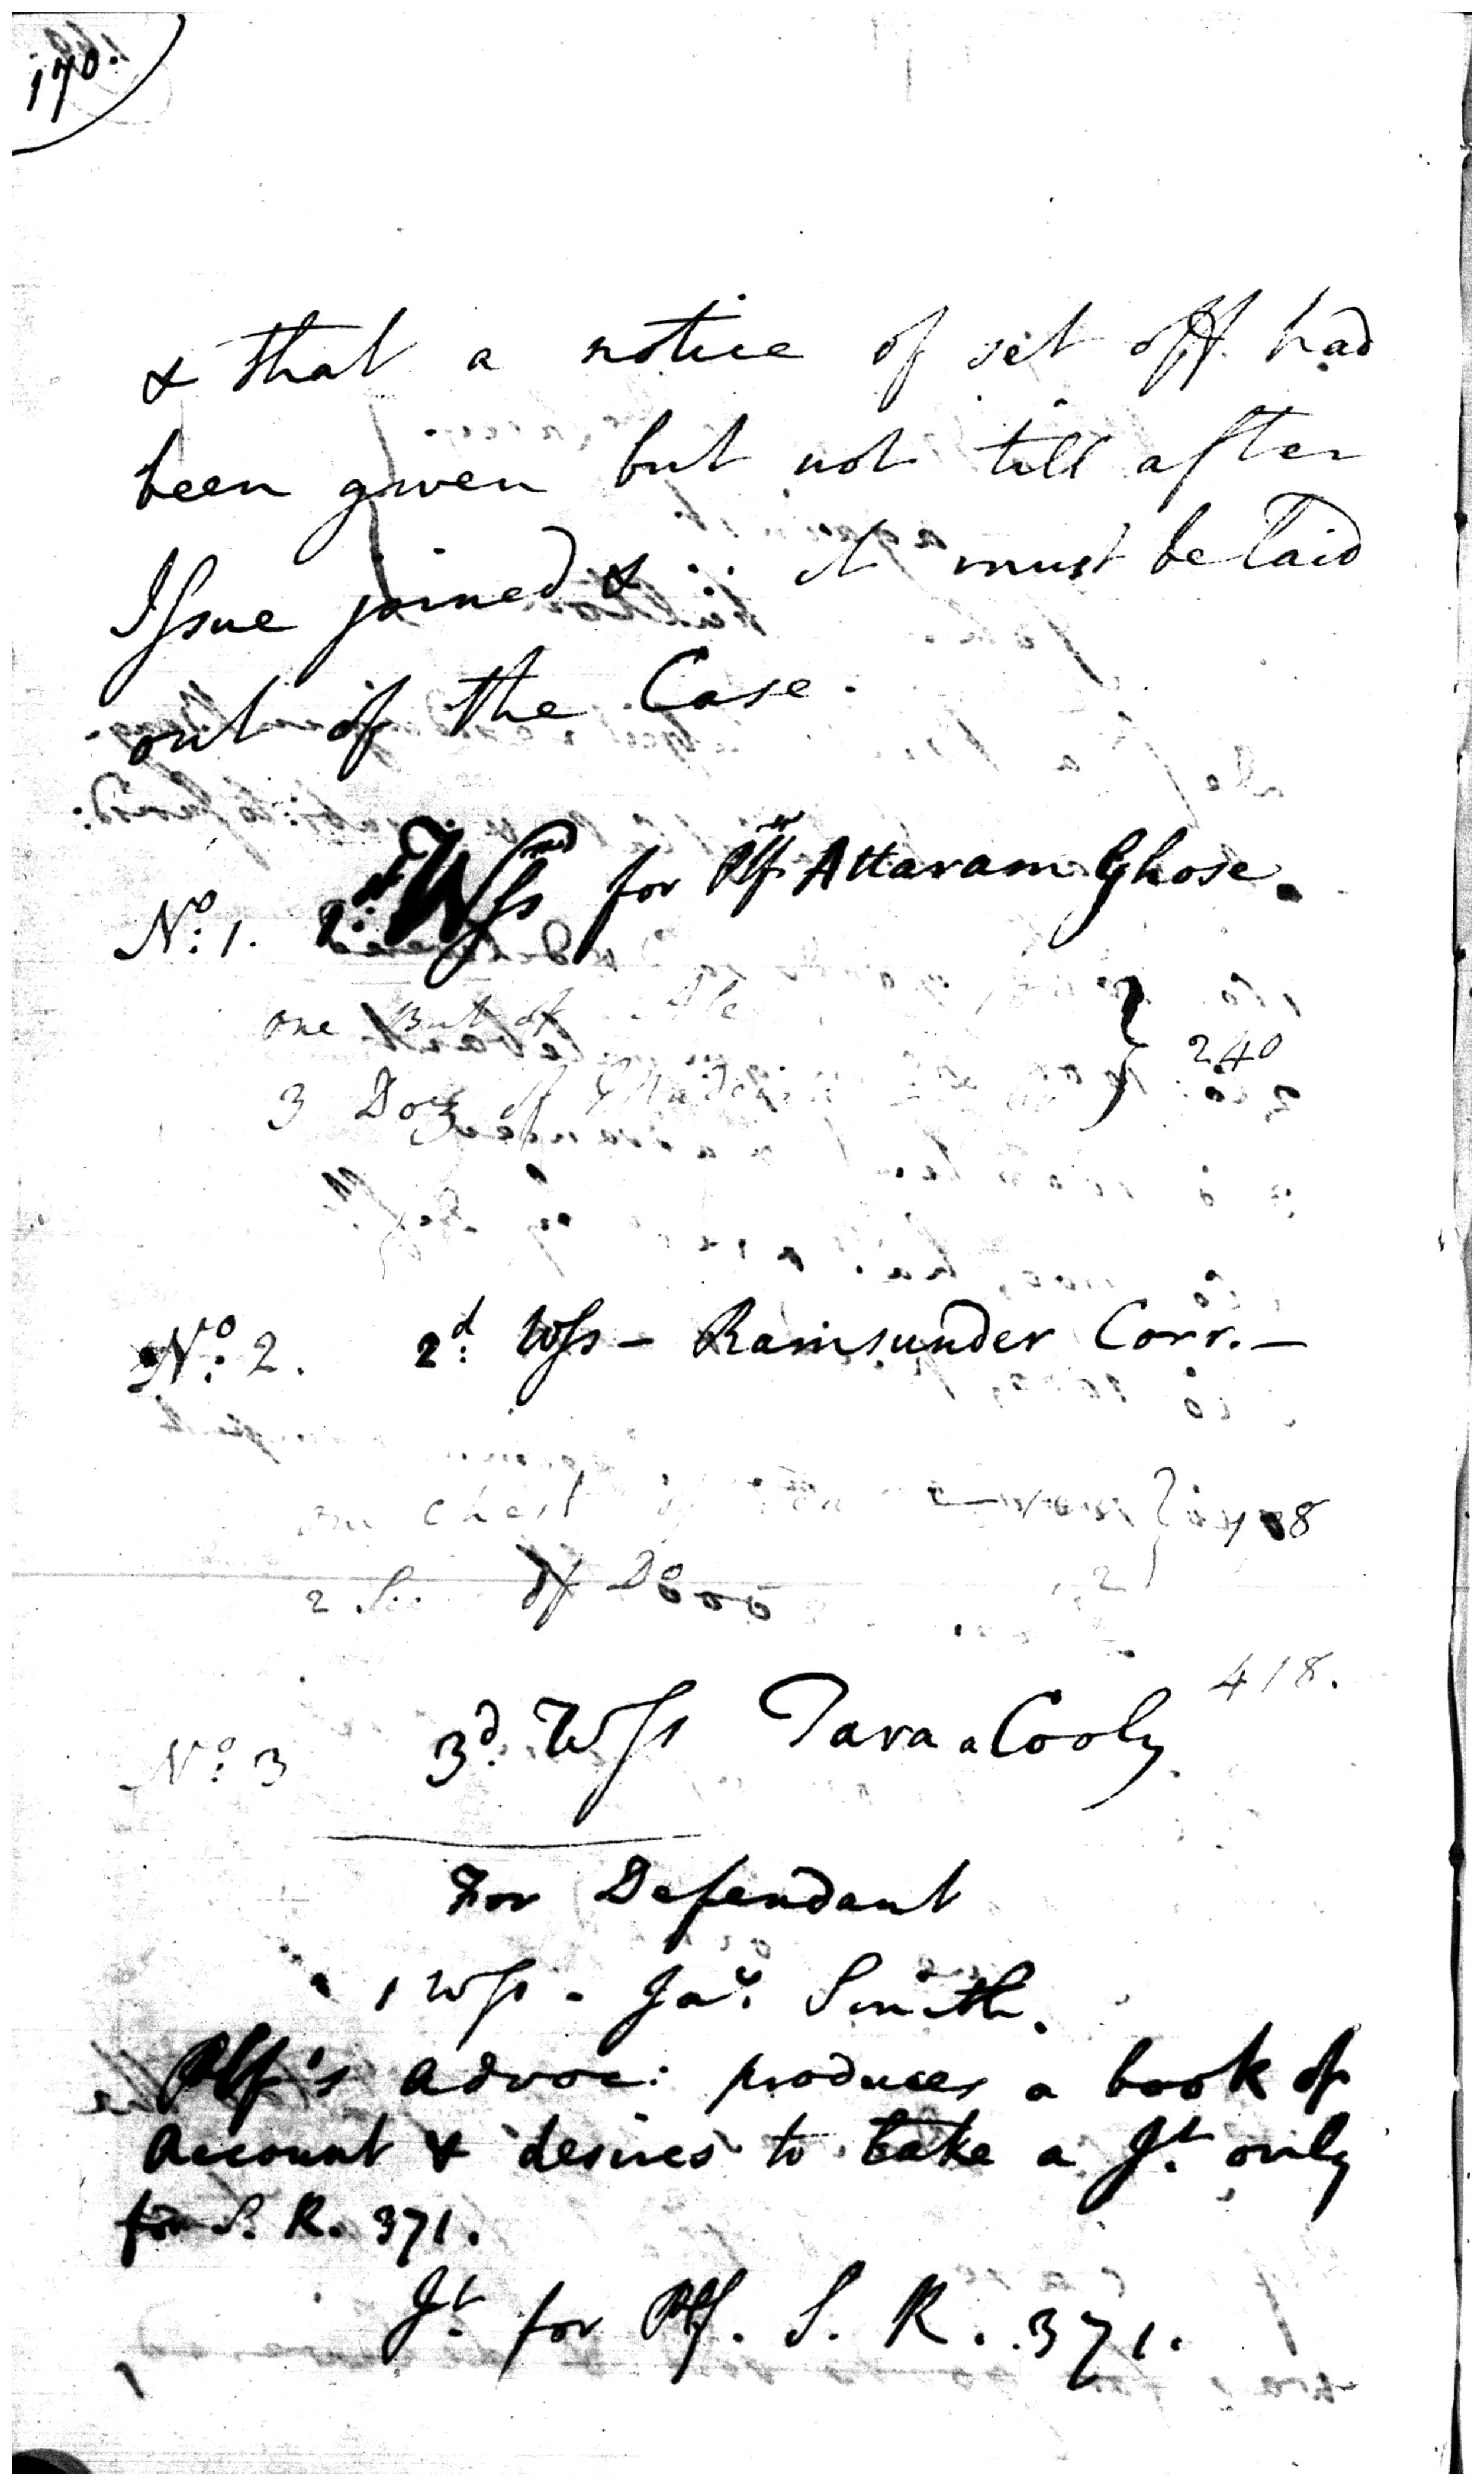 170.
& that a notice of set off had
been given but not till after
Issue joined & ∴ it must be laid
out of the Case.
No. 1. 1st Wss for Plf Attaram Ghose.
one But of Ale
3 Doz of } 240
No. 2. 2d. Wss - Ramsunder Corr. -
one Chest
2 of Do
418.
No. 3 3d. Wss Tara a Cooly
For Defendant
1 Wss - Jas. Smith.
Plf's advoc: produces a book of
Account & desires to take a Jt. only
for S. R. 371.
Jt. for Plf. S. R. 371.